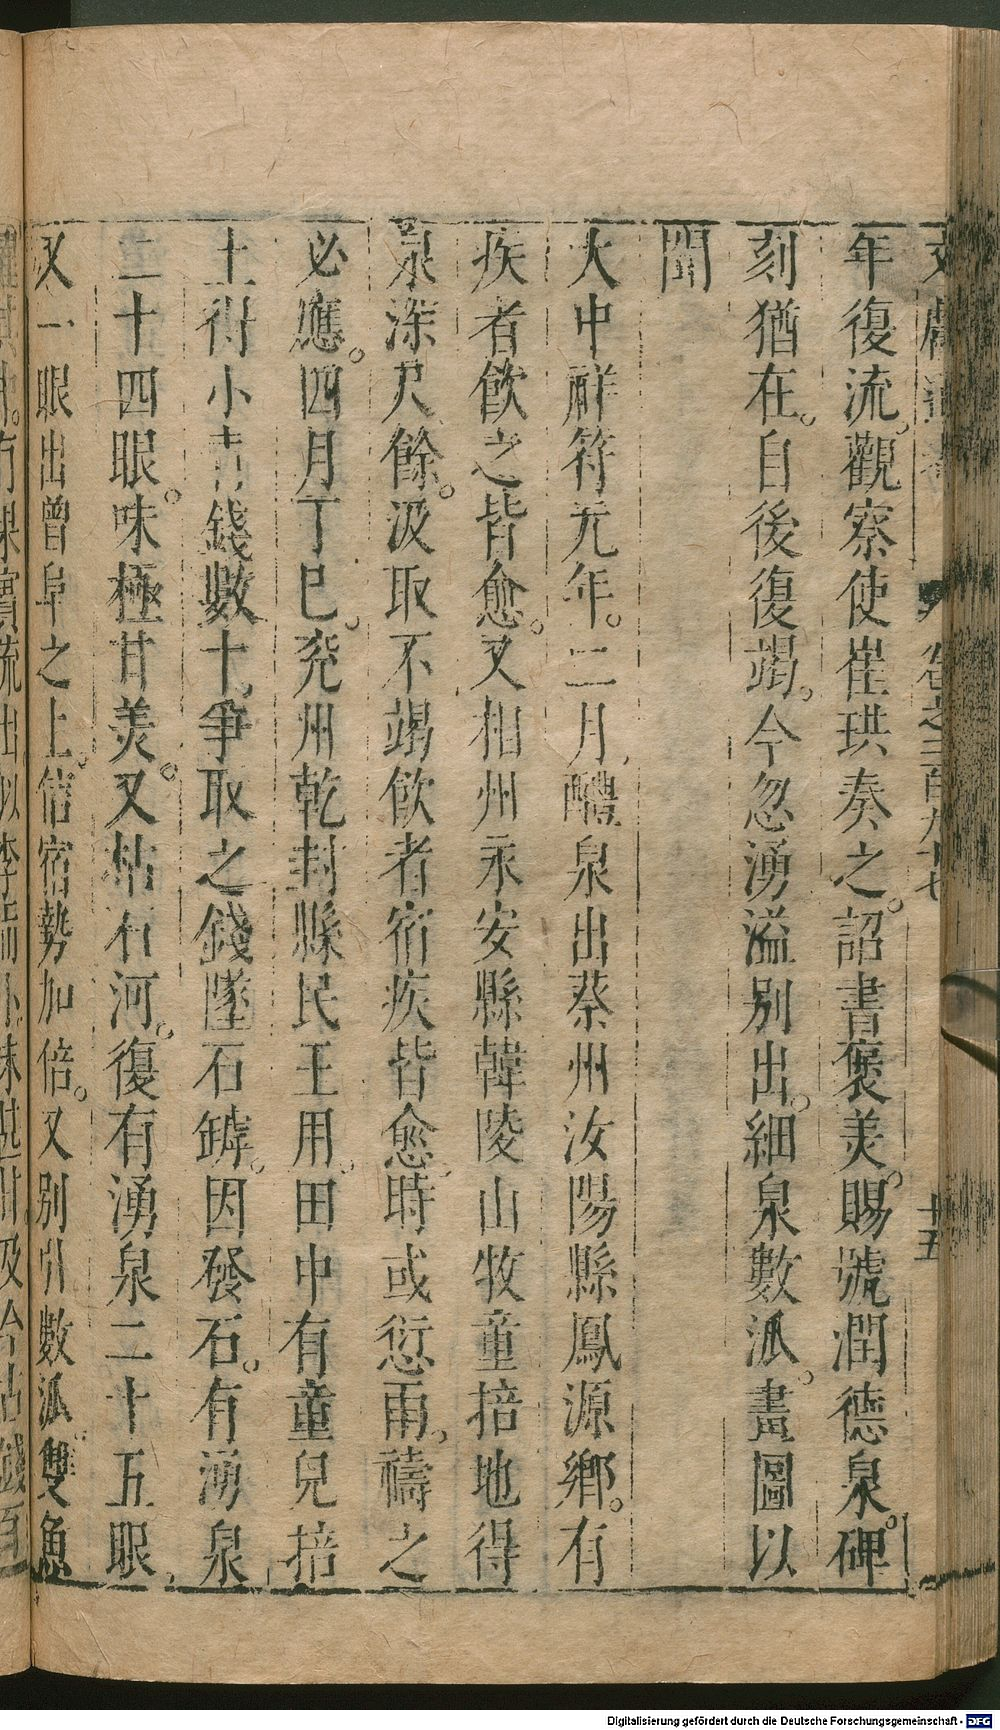 年復流。觀察使崔珙奏之。詔書褒美。賜號潤德泉。碑
刻猶在。自後復竭。今忽湧溢別出。細泉數泒。畫圖以
聞
大中祥符元年。二月醴泉出蔡州汝陽縣鳳源鄉。有
疾者飲之皆愈。又相州永安縣韓陵山牧童掊地得
泉深尺餘。汲取不竭飲者宿疾皆愈時或愆雨。禱之
必應。四月丁巳。兖州乾封縣民王用。田中有童兒掊
土得小青錢數十爭取之錢墜石罅。因發石。有湧泉
二十四眼。味極甘美。又枯石河。復有湧泉二十五眼
又一眼出曾阜之上。信宿勢加倍。又別引數泒雙魚
卷之二百九十七
十五
Digitalisierung gefördert durch die Deutsche Forschungsgemeinschaft - DFG